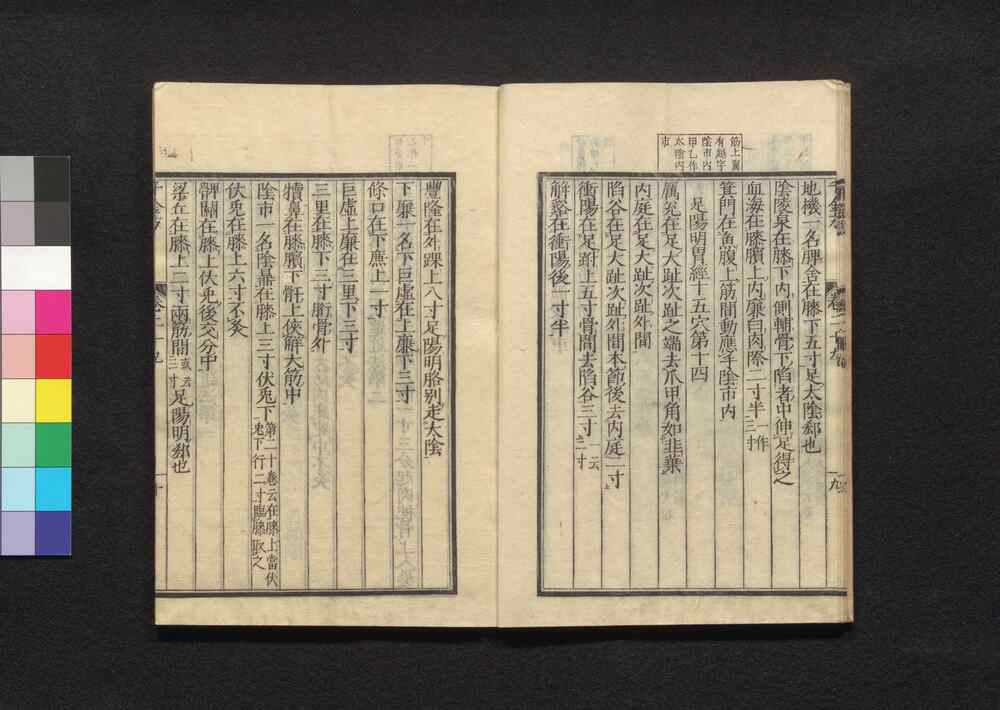 地機一名脾舍在膝下五寸足太陰郄也
陰陵泉在膝下內側輔骨下陷者中伸足得之
血海在膝臏上內廉白肉際二寸半一作三寸
箕門在魚腹上筋間動應手陰市內
足陽明胃經十五穴第十四
厲兌在足大趾次趾之端去爪甲角如韭葉
內庭在足大趾次趾外間
陷谷在足大趾次趾外間本節後去內庭二寸
衝陽在足跗上五寸骨間去陷谷三寸一云二寸
解谿在衝陽後一寸半
筋上翼
有越字
陰市內
甲乙作
太陰內
市
豐隆在外踝上八寸足陽明胳別走太陰
下廉一名下巨虛在上廉下三寸
條口在下廉上一寸
巨虛上廉在三里下三寸
三里在膝下三寸胻骨外
犢鼻在膝臏下骭上俠解大筋中
陰市一名陰鼎在膝上三寸伏兎下第二十卷云在膝上當伏兎下行二寸臨膝取之
伏兎在膝上六寸不灸
髀關在膝上伏兎後交分中
梁丘在膝上二寸兩筋間或云三寸足陽明郄也